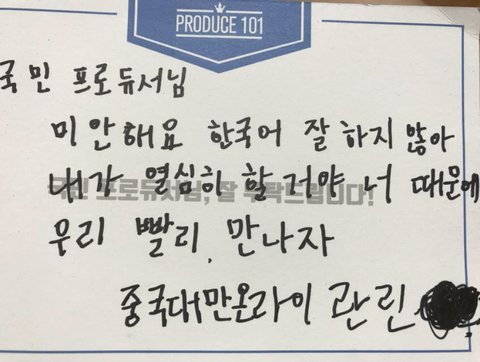 PRODUCE 101
국민 프로듀서님
미안해요 한국어 잘 하지 않아
내가 열심히 할 거야 너 때문에
국민 프로듀서님, 잘 부탁드립니다!
우리 빨리, 만나자
중국대만온라이 관린